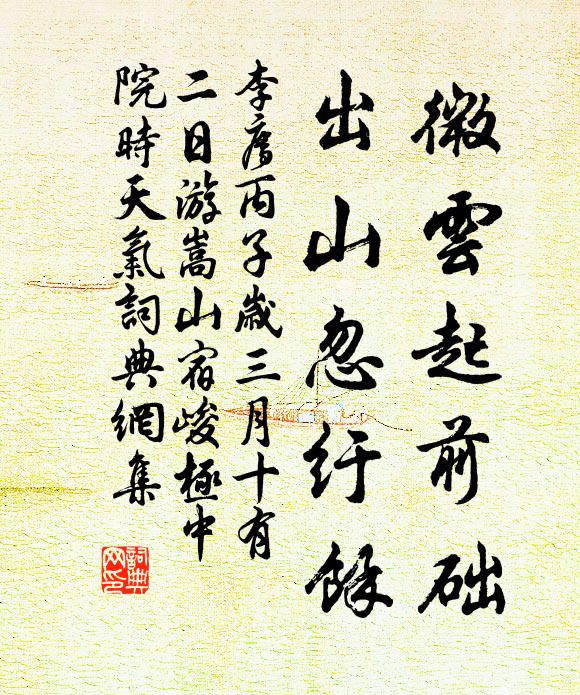 微雲起前础
出山忽纡餘
李廌丙子歲三月十有
二日游嵩山宿峻極中
院時天氣詞典網集
詞典网印